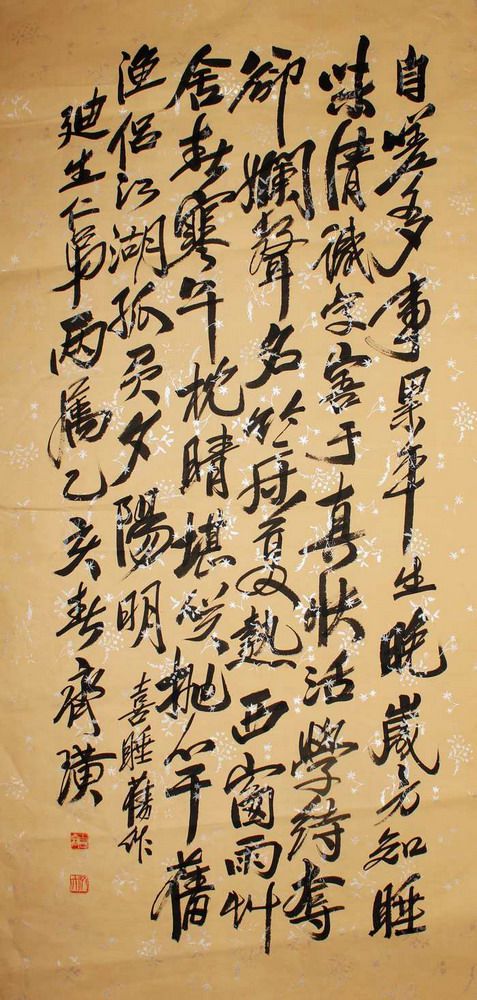 自嗟多事累平生晚歲方知睡
味清識字害于真快活學詩奪
卻嬾聲名竹床夏熱西窗雨艸
舍春寒午枕晴堪笑拋竿舊
漁侶江湖孤負夕陽明
喜睡舊作
廸生仁弟兩屬乙亥春齊璜